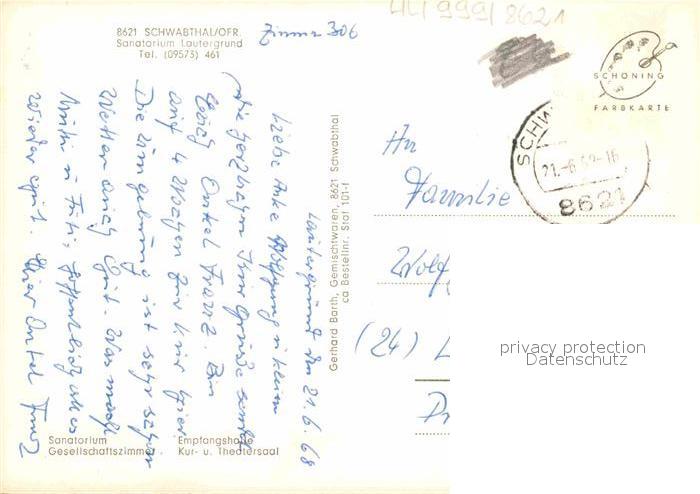 8621 SCHWABTHAL/OFR.
Sanatorium Lautergrund
Tel. (09573) 461
Zimmer 306
44/999/8621
SCHÖNING
FARBKARTE
SCHW
21.-6.68-16
8621
An
Familie
Wolf
(24) L
Lautergrund den 21.6.68
Liebe Anke Wolfgang u. klein
die herzlichen Kurgrüße sendet
Euch Onkel Franz. Bin
auf 4 Wochen zur Kur hier
Die Umgebung ist sehr schön
Wetter auch gut. Was macht
Mutti u. hoffentlich alles
wieder gut. Euer Onkel Franz
Gerhard Barth, Gemischtwaren, 8621 Schwabthal
ca Bestellnr. Staf 101-f
Sanatorium
Gesellschaftszimmer
Empfangshalle
Kur- u. Theatersaal
privacy protection
Datenschutz